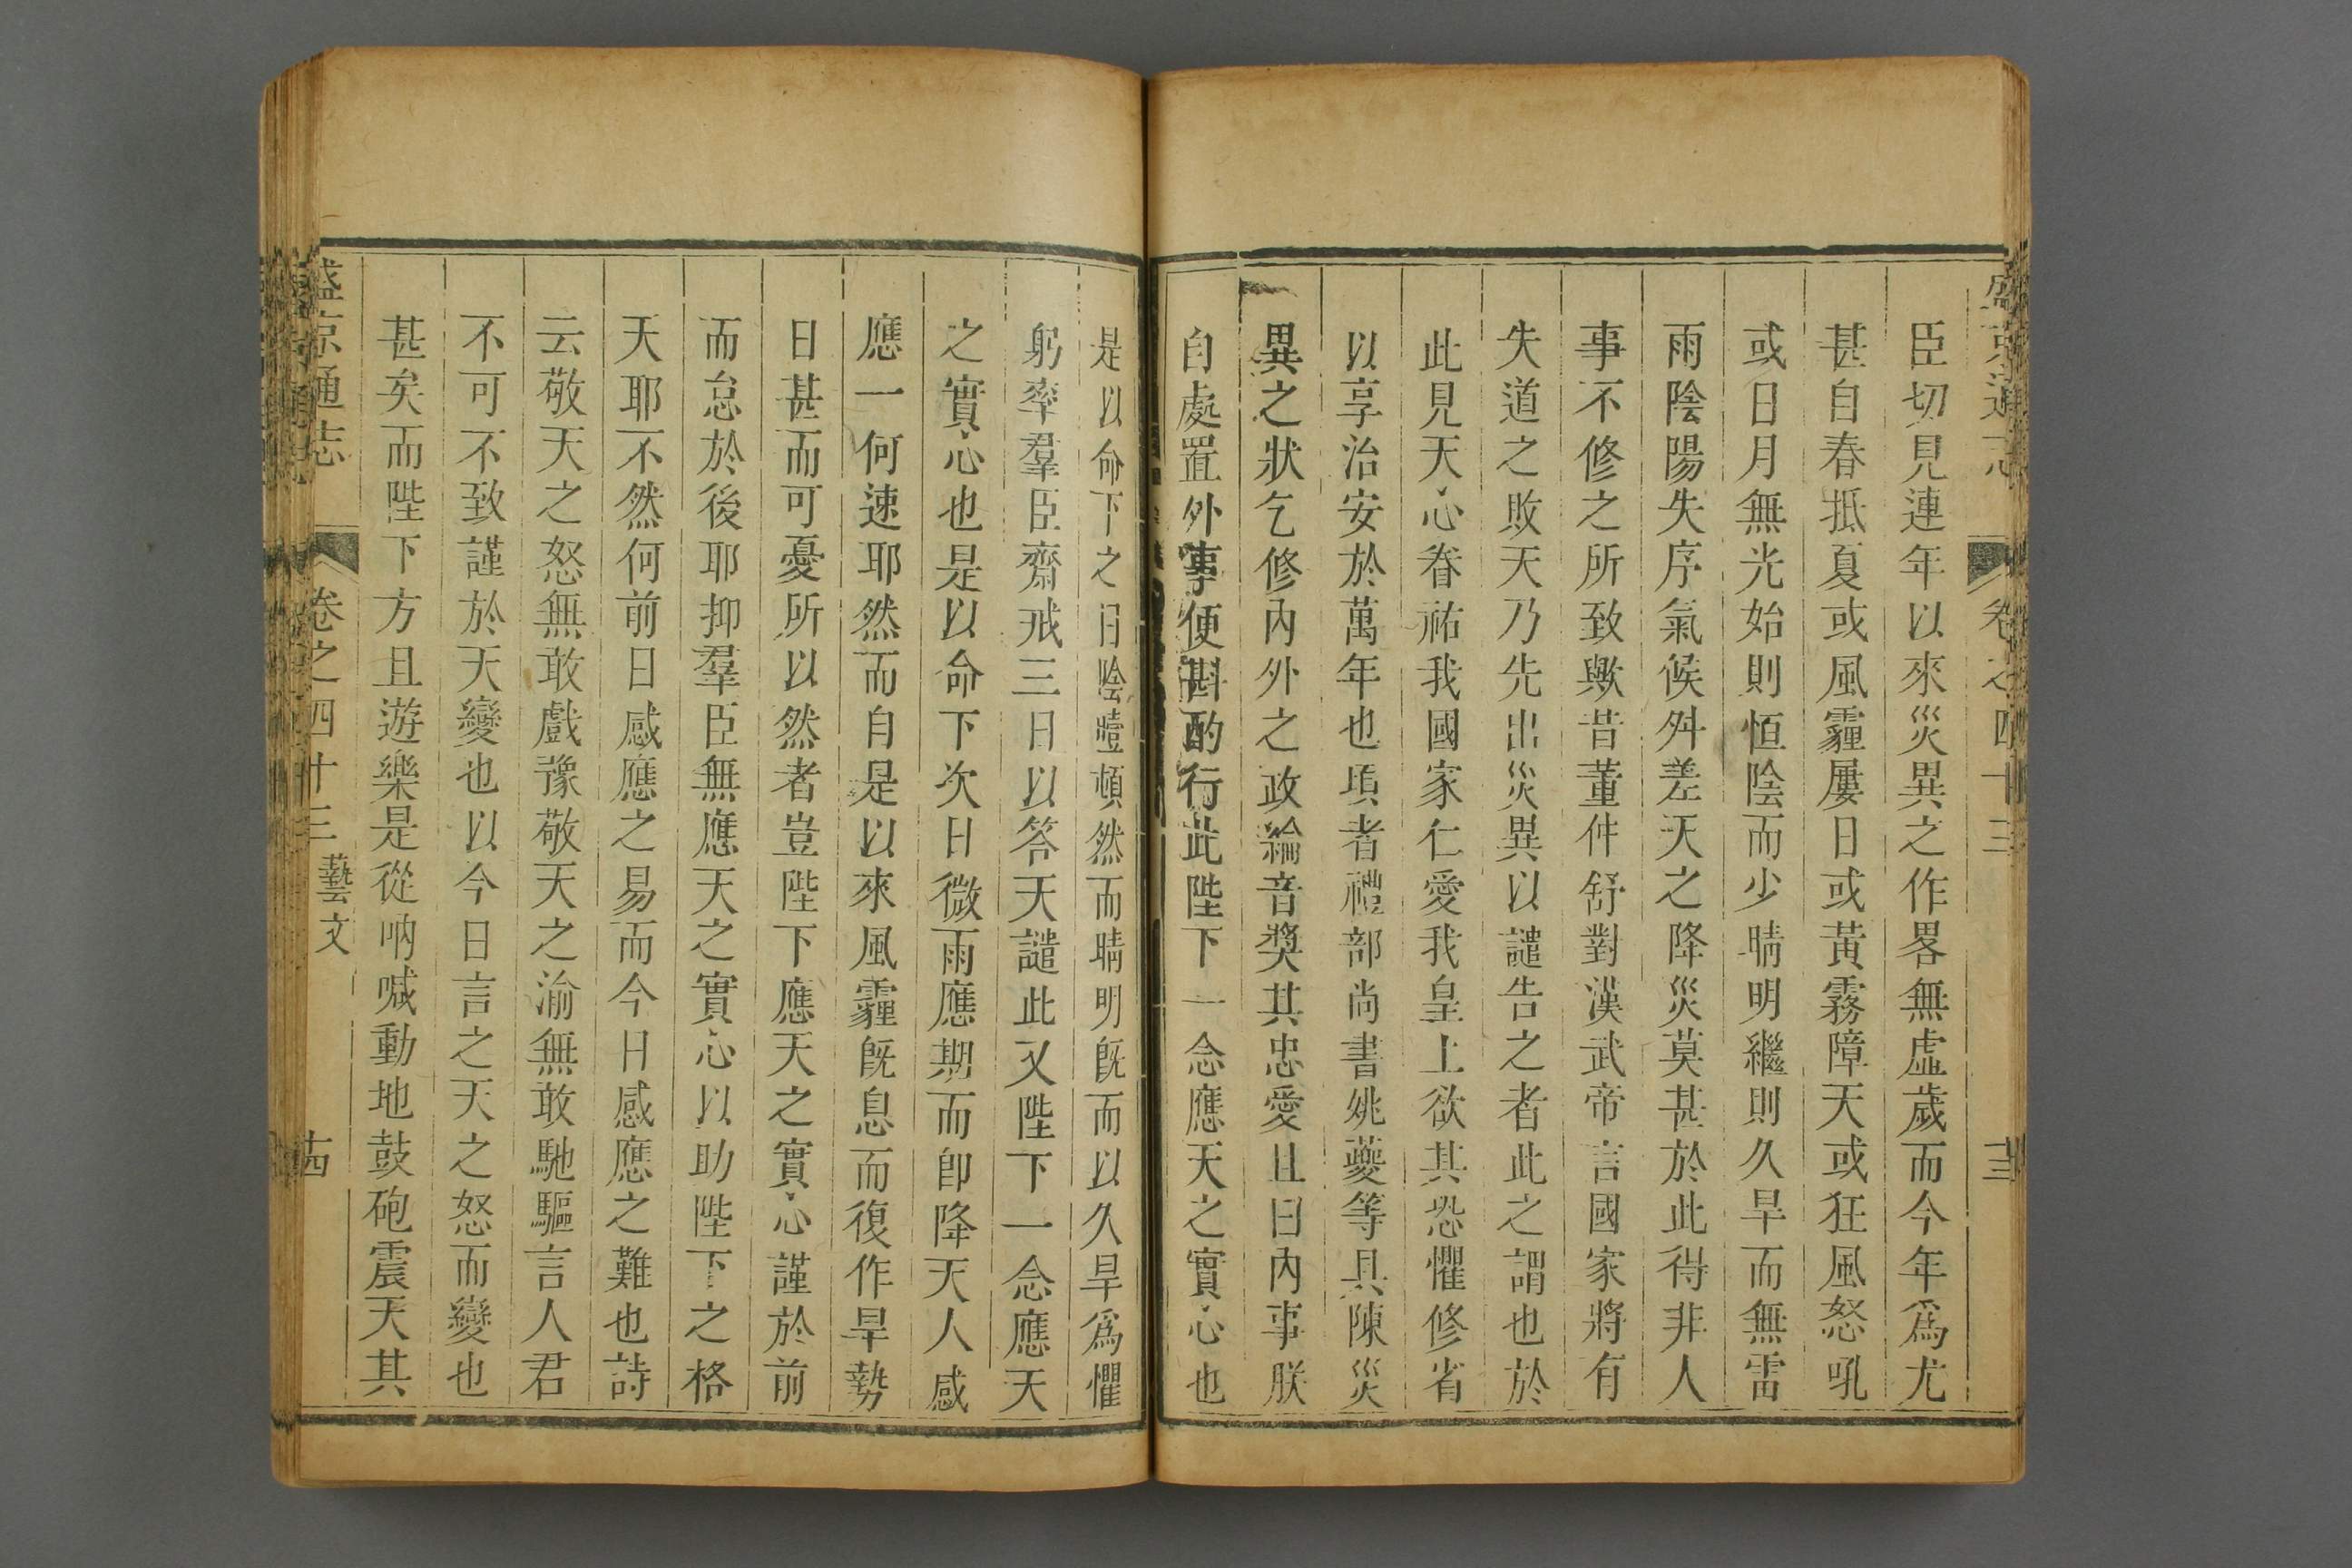 盛京通志 卷之四十三 十三
臣切見連年以來災異之作畧無虛歲而今年爲尤
甚自春抵夏或風霾屢日或黃霧障天或狂風怒吼
或日月無光始則恒陰而少晴明繼則久旱而無雷
雨陰陽失序氣候舛差天之降災莫甚於此得非人
事不修之所致歟昔董仲舒對漢武帝言國家將有
失道之敗天乃先出災異以譴告之者此之謂也於
此見天心眷祐我國家仁愛我皇上欲其恐懼修省
以享治安於萬年也頃者禮部尚書姚夔等具陳災
異之狀乞修內外之政綸音奬其忠愛且曰內事朕
自處置外事便斟酌行此陛下一念應天之實心也
是以命下之日陰曀頓然而晴明旣而以久旱爲懼
躬率羣臣齋戒三日以答天譴此又陛下一念應天
之實心也是以命下次日微雨應期而卽降天人感
應一何速耶然而自是以來風霾旣息而復作旱勢
日甚而可憂所以然者豈陛下應天之實心謹於前
而怠於後耶抑羣臣無應天之實心以助陛下之格
天耶不然何前日感應之易而今日感應之難也詩
云敬天之怒無敢戲豫敬天之渝無敢馳驅言人君
不可不致謹於天變也以今日言之天之怒而變也
甚矣而陛下方且遊樂是從吶喊動地鼓砲震天其
盛京通志 卷之四十三 藝文 十四